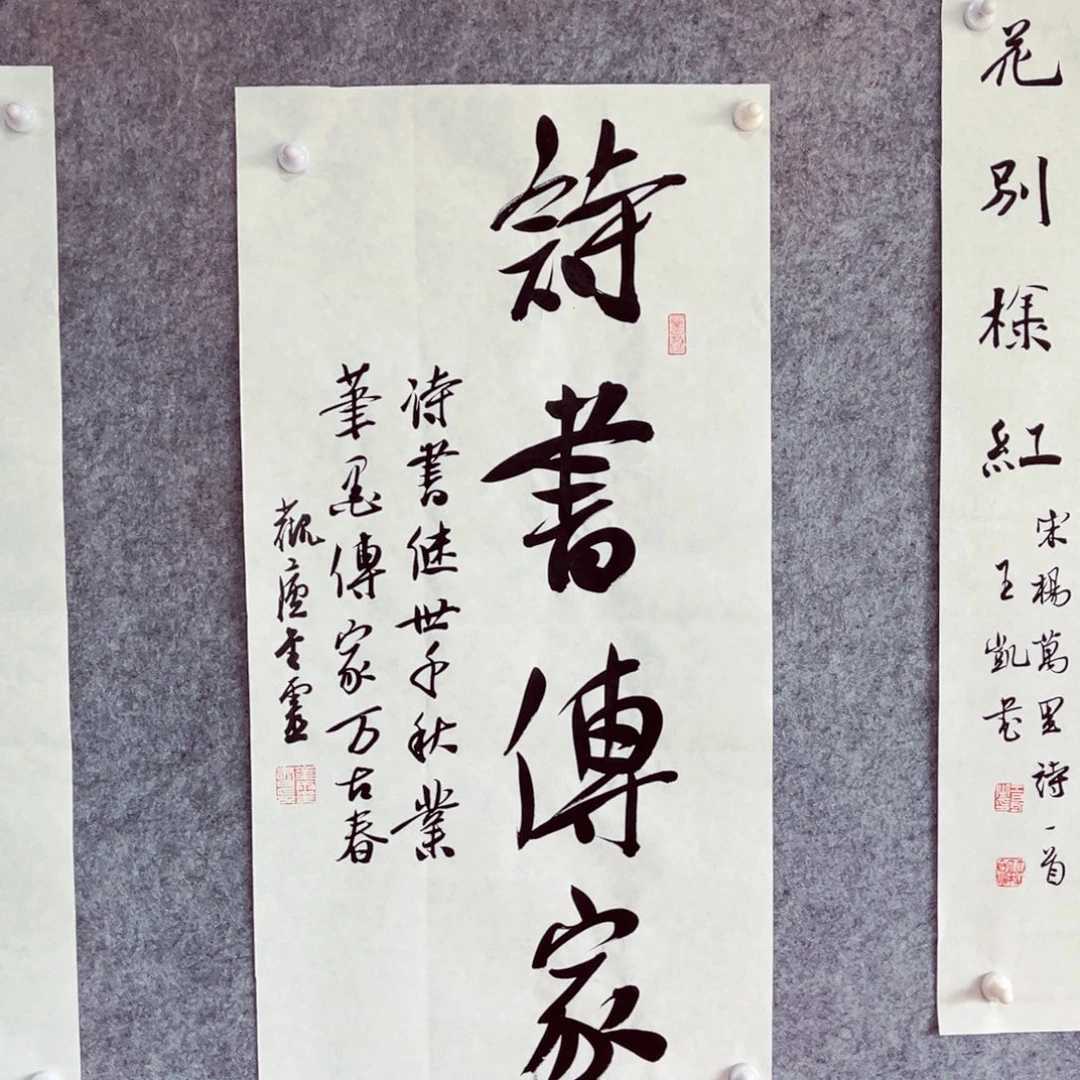 花別樣紅
宋楊萬里詩一首
王凱書
詩書傳家
诗書继世千秋業
筆墨傳家万古春
觀廬